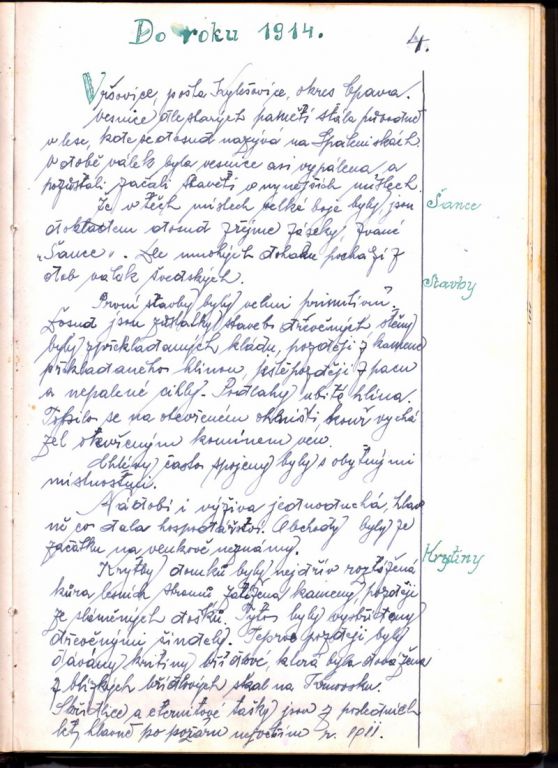 Do roku 1914.
4.
Vršovice, pošta Kylešovice, okres Opava.
vesnice dle starých pamětí stála původně
v lese, kde se dosud nazývá na Spáleniskách.
V době válek byla vesnice asi vypálena, a
pozůstalí začali stavěti v nynějších místech.
Že v těch místech velké boje byly jsou
dokladem dosud zřejmé záseky zvané
„Šance". Dle mnohých dohadu pochází z
dob válek švédských.
Šance
První stavby byly velmi primitivní.
Stavby
Dosud jsou zůstatky staveb dřevěných stěny
byly z překládaných kládů, později z kamene
překládaného hlinou, ještě později z pacu
a nepálené cihly. Podlahy ubitá hlína.
Topilo se na otevřeném ohništi, kouř vychá
zel otevřeným komínem ven.
Chlévy často spojeny byly s obytnými
místnostmi.
Nádobí i výživa jednoduchá, hlav
ně co dala hospodářství. Obchody byly ze
začátku na venkově neznámy.
Krytiny
Krytby domků byly nejdřív roztažená
kůra lesních stromů zatížena kameny, později
ze slaměných došků. Tyto byly vystřídány
dřevěnými šindely. Teprve později byly
dávány kritiny břidlové, která byla dovážena
z blízkých břidlových skal na
a eternitové tašky jsou z posledních
let, hlavně po požáru největším r. 1911.